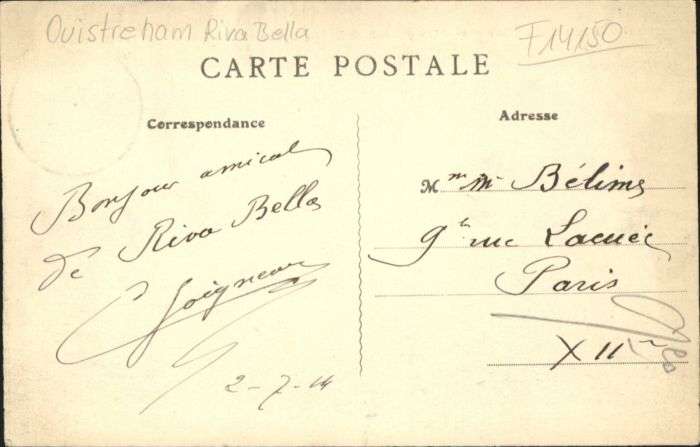 Ouistreham Riva Bella
F14150
CARTE POSTALE
Correspondance
Adresse
Bonjour amical
de Riva Bella
Soigneur
2-7-14
Mme M Bélime
9 rue Lacuée
Paris
XII